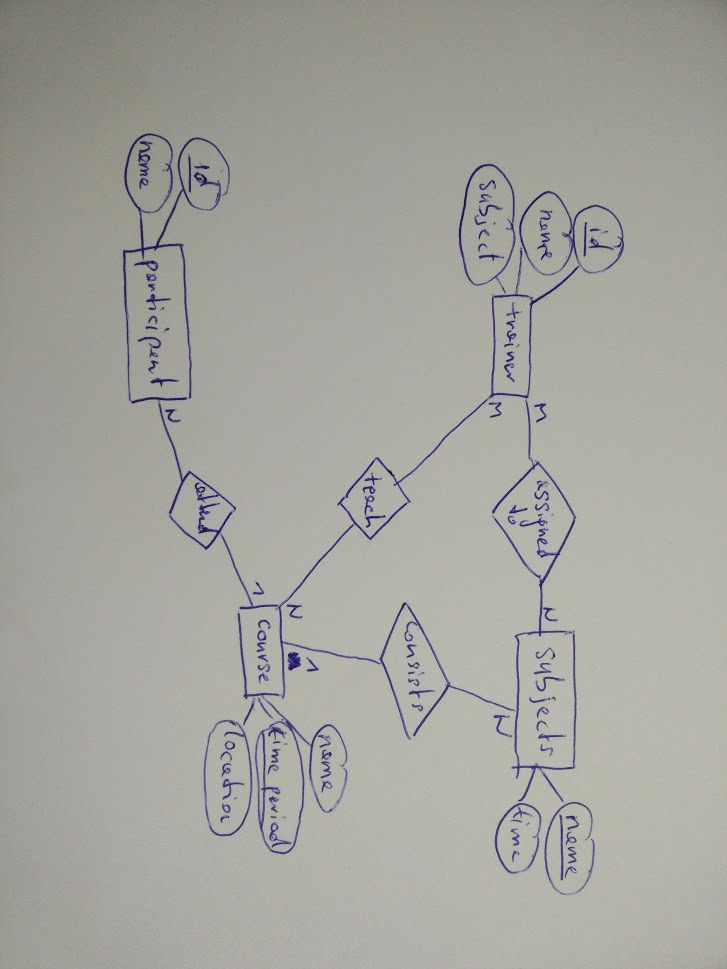 id
name
subject
trainer
M
M
assigned
to
N
subjects
name
time
N
consists
1
teach
N
course
name
time period
location
1
attend
N
participant
id
name